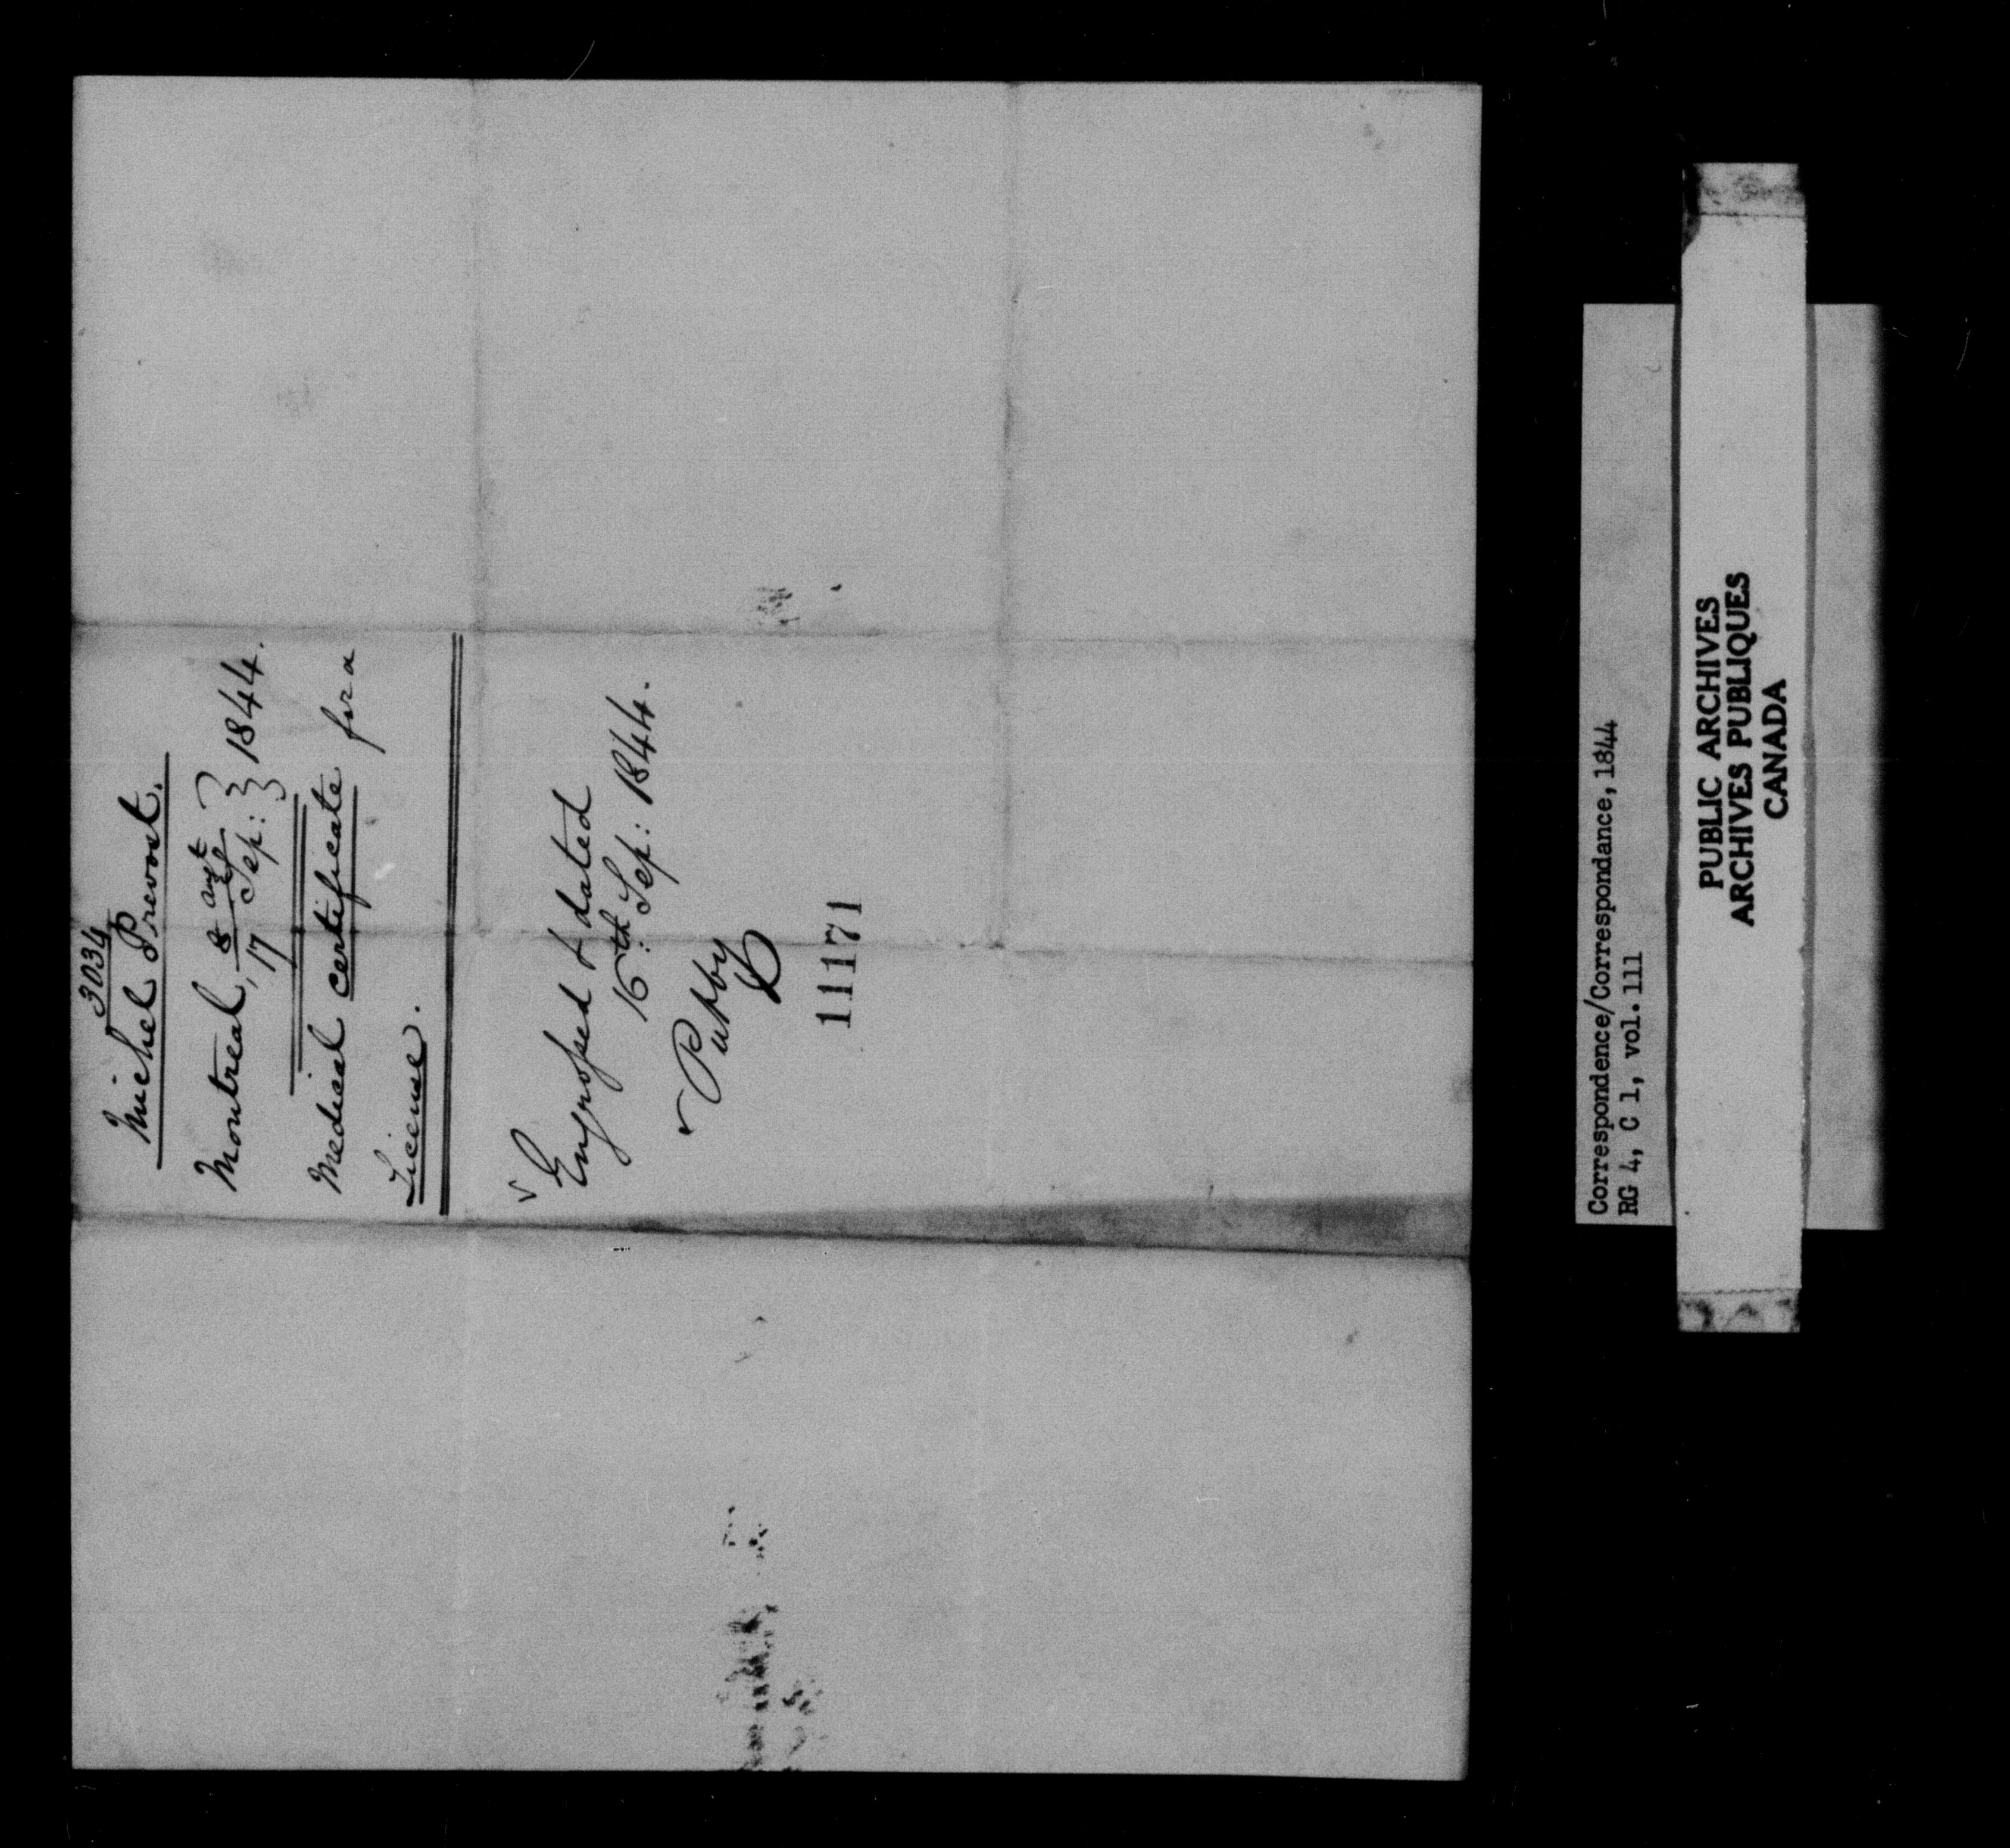 3034
Michel Prevost.
Montreal, 8 augt }
17 Sep: } 1844.
Medical certificate for a
License.
✓ Engrossed & dated
16th: Sep: 1844.
✓
11171
Correspondence/Correspondance, 1844
RG 4, C 1, vol.111
PUBLIC ARCHIVES
ARCHIVES PUBLIQUES
CANADA